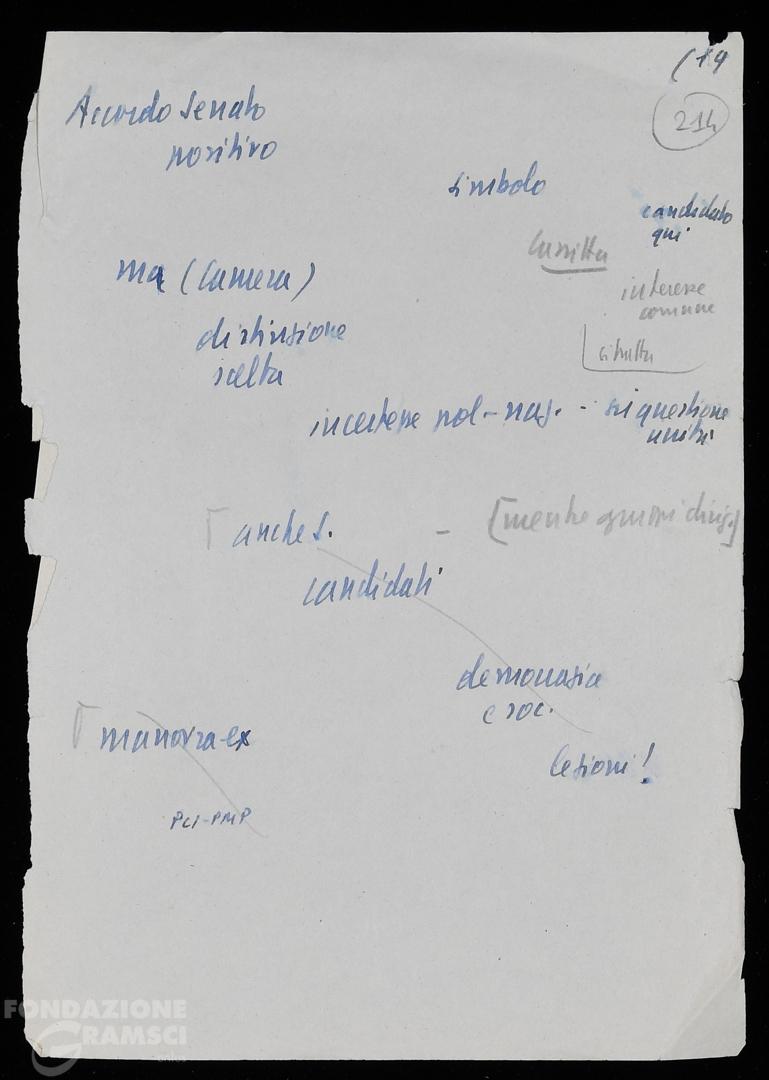 (14
214
Accordo Senato
positivo
simbolo
candidato
qui
ma (Camera)
interesse
comune
distinzione
scelta
interesse pol-naz. - si questione
unità
anche S. - [mentre gruppi dirig.]
candidati
democrazia
e soc.
manovra-ex
lezioni!
PCI-PMP
FONDAZIONE
GRAMSCI
onlus